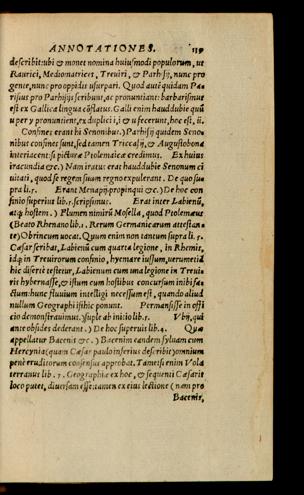 ANNOTATIONES.
describit: ubi & monet nomina huiusmodi populorum, ut
Raurici, Mediomatrices, Treviri, & Parhisij, nunc pro
gente, nunc pro oppidis usurpari. Quod autẽ quidam Pa
risius pro Parhisijs scribunt, ac pronuntiant: barbarismus
est ex Gallica lingua cõflatus. Galli enim haud dubie quũ
u per y pronuntient, ex duplici i, & u fecerunt, hoc est, ii.
Confines erant hi Senonibus.) Parhisij quidem Seno
nibus confines sunt, sed tamen Triccasij, & Augustobona
interiacent: si picturæ Ptolemaicæ credimus. Ex huius
iracundia &c.) Nam iratus erat haud dubie Senonum ci
vitati, quod se regem suum regno expulerant. De quo su
pra li.5. Erant Menapij propinqui &c.) De hoc con
finio superius lib. scripsimus. Erat inter Labienũ,
atq; hostem.) Flumen nimirũ Mosella, quod Ptolemæus
(Beato Rhenano lib.1. Rerum Germanicarum attestan=
te) Obrincum vocat. Quum enim non tantum supra li.5.
Cæsar scribat, Labienũ cum quarta legione, in Rhemis,
idq; in Trevirorum confinio, hyemare iussum, verumetiã
hic disertè testetur, Labienum cum una legione in Trevi=
ris hybernasse, & istum cum hostibus concursum inibi fa=
ctum: hunc fluvium intelligi necessum est, quando aliud
nullum Geographi isthic ponunt. Permansisse in offi
cio demonstravimus.) suple ab initio lib.5. Vbij, qui
ante obsides dederant.) De hoc superuis lib.4. Quæ
appellatur Bacenis &c.) Bacenim eandem sylvam cum
Hercynia (quam Cæsar paulo inferius describit) omnium
penè eruditorum consensus approbat. Tametsi enim Vola
terranus lib.7. Geographiæ ex hoc, & sequenti Cæsaris
loco putet, diversam esse: tamen ex eius lectione (nam pro
Bacenis,